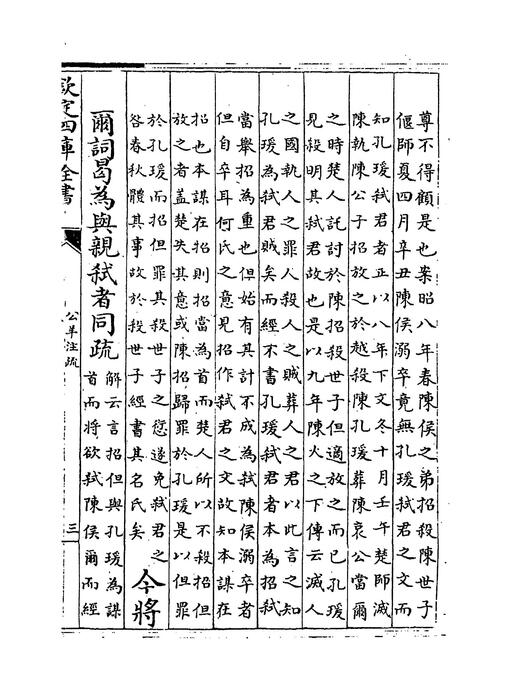 尊不得顧是也案昭八年春陳侯之弟招殺陳世子
偃師夏四月辛丑陳侯溺卒竟無孔瑗弑君之文而
知孔瑗弑君者正以八年下文冬十月壬午楚師滅
陳執陳公子招放之於越殺陳孔瑗葬陳哀公當爾
之時楚人託討於陳招殺世子但適放之而已孔瑗
見殺明其弑君故也是以九年陳火之下傳云滅人
之國執人之罪人殺人之賊葬人之君以此言之知
孔瑗為弑君賊矣而經不書孔瑗弑君者本為招弑
當舉招為重也但始有其計不成為弑陳侯溺卒者
但自卒耳何氏之意見招作弑君之文故知本謀在
招也本謀在招則招當為首而楚人所以不殺招但
放之者盖楚失其意或陳招歸罪於孔瑗是以但罪
於孔瑗而招但罪其殺世子之愆遂免弑君之
咎春秋體其事故於殺世子經書其名氏矣
今將
爾詞曷為與親弑者同疏
解云言招但與孔瑗為謀
首而將欲弑陳侯爾而經
欽定四庫全書
公羊注疏
三